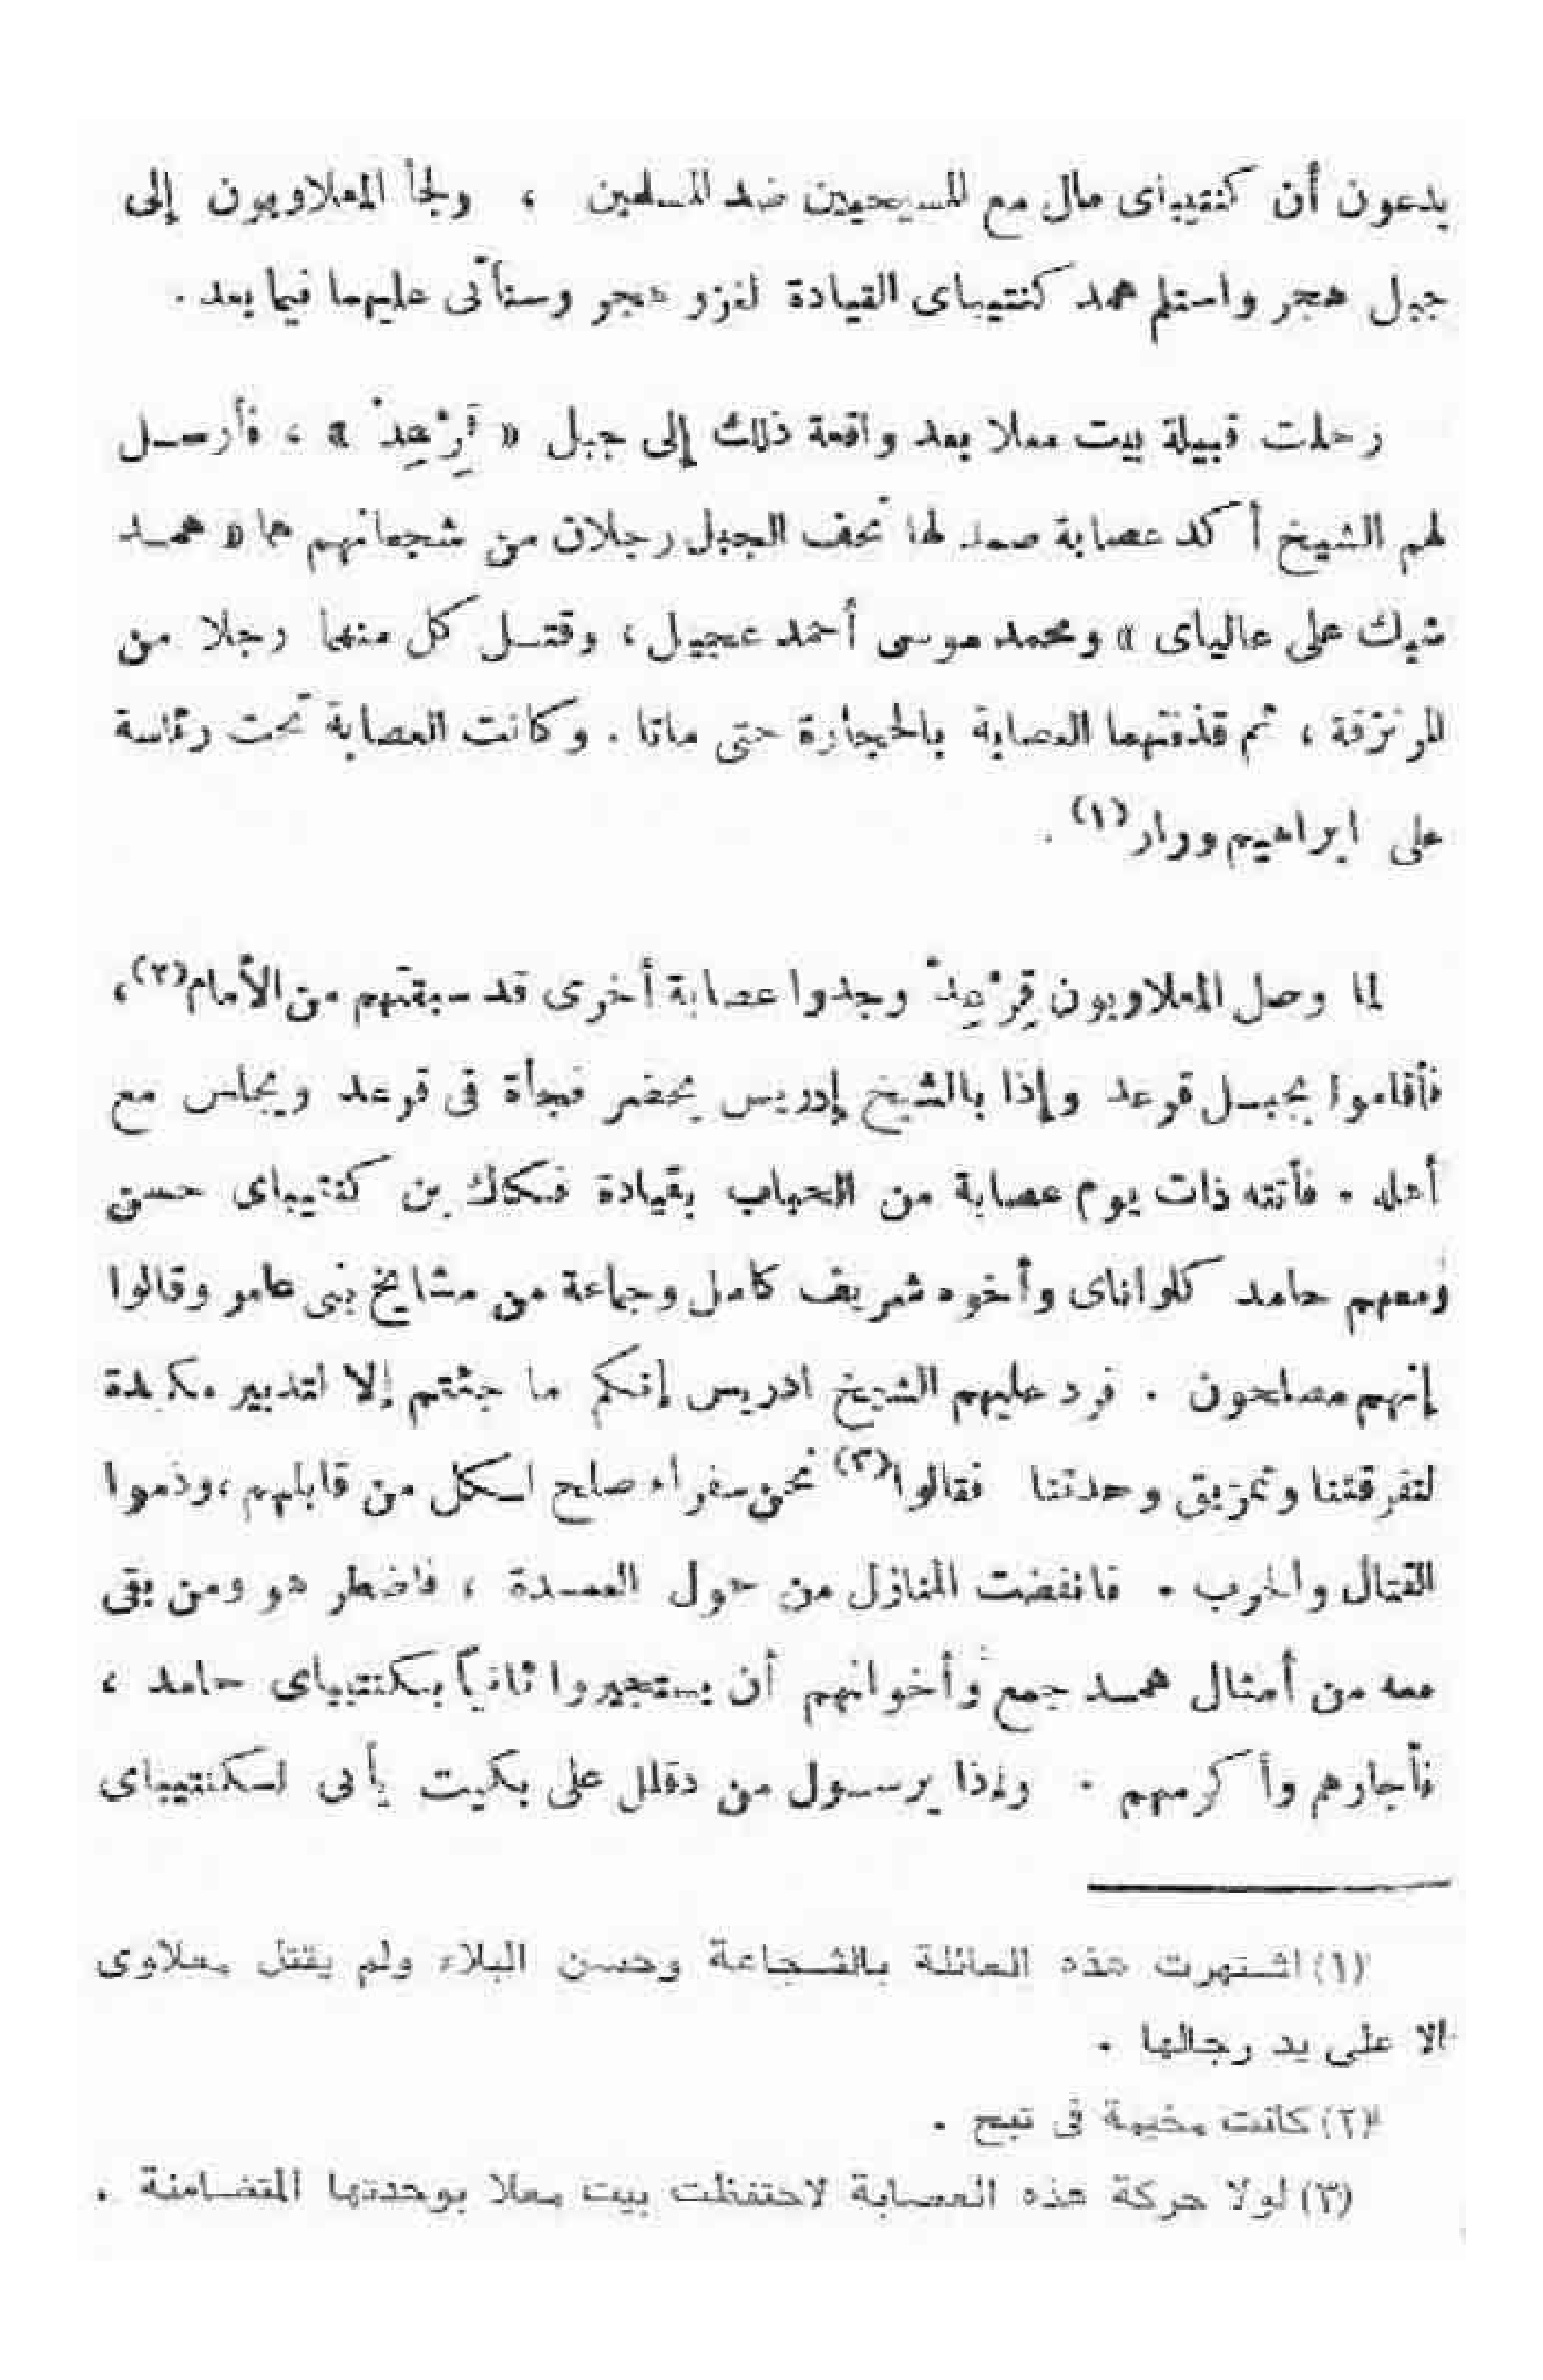 يدعون أن كنتيباى مال مع المسيحيين ضد المسلمين ، ولجأ المعلاويون إلى
جبل هجر واستلم همد كنتيباى القيادة لغزو هجر وسنأتى عليهما فيما بعد .
رحلت قبيلة بيت معلا بعد واقعة ذلك إلى جبل « قِرْعِدْ » ، فأرسل
لهم الشيخ أكد عصابة صمد لها تحف الجبل رجلان من شجعانهم هما « همد
شيك على عالياى » ومحمد موسى أحمد عجيل ، وقتل كل منهما رجلا من
المرتزقة ، ثم قذفتهما العصابة بالحجارة حتى ماتا . وكانت العصابة تحت رئاسة
على ابراهيم ورار (١) .
لما وصل المعلاويون قِرْعِدْ وجدوا عصابة أخرى قد سبقتهم من الأمام (٢) ،
فأقاموا بجبل قرعد وإذا بالشيخ إدريس يحضر فجأة فى قرعد ويجلس مع
أهله . فأتته ذات يوم عصابة من الحباب بقيادة فكاك بن كنتيباى حسن
ومعهم حامد كلواناى وأخوه شريف كامل وجماعة من مشايخ بنى عامر وقالوا
إنهم مصلحون . فرد عليهم الشيخ ادريس إنكم ما جئتم إلا لتدبير مكيدة
لتفرقتنا وتمزيق وحدتنا فقالوا (٣) نحن سفراء صلح لكل من قابلهم ، وذموا
القتال والحرب . فانفضت المنازل من حول العمدة ، فاضطر هو ومن بقى
معه من أمثال همد جمع وأخوانهم أن يستجيروا ثانياً بكنتيباى حامد ،
فأجارهم وأكرمهم . وإذا برسول من دقلل على بكيت يأتى لكنتيباى
(١) اشتهرت هذه العائلة بالشجاعة وحسن البلاء ولم يقتل معلاوى
الا على يد رجالها .
(٢) كانت مخيمة فى تبح .
(٣) لولا حركة هذه العصابة لاحتفظت بيت معلا بوحدتها المتضامنة .